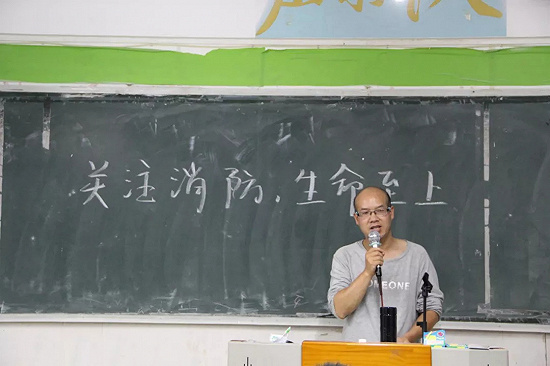 关注消防，生命至上
OMEONE